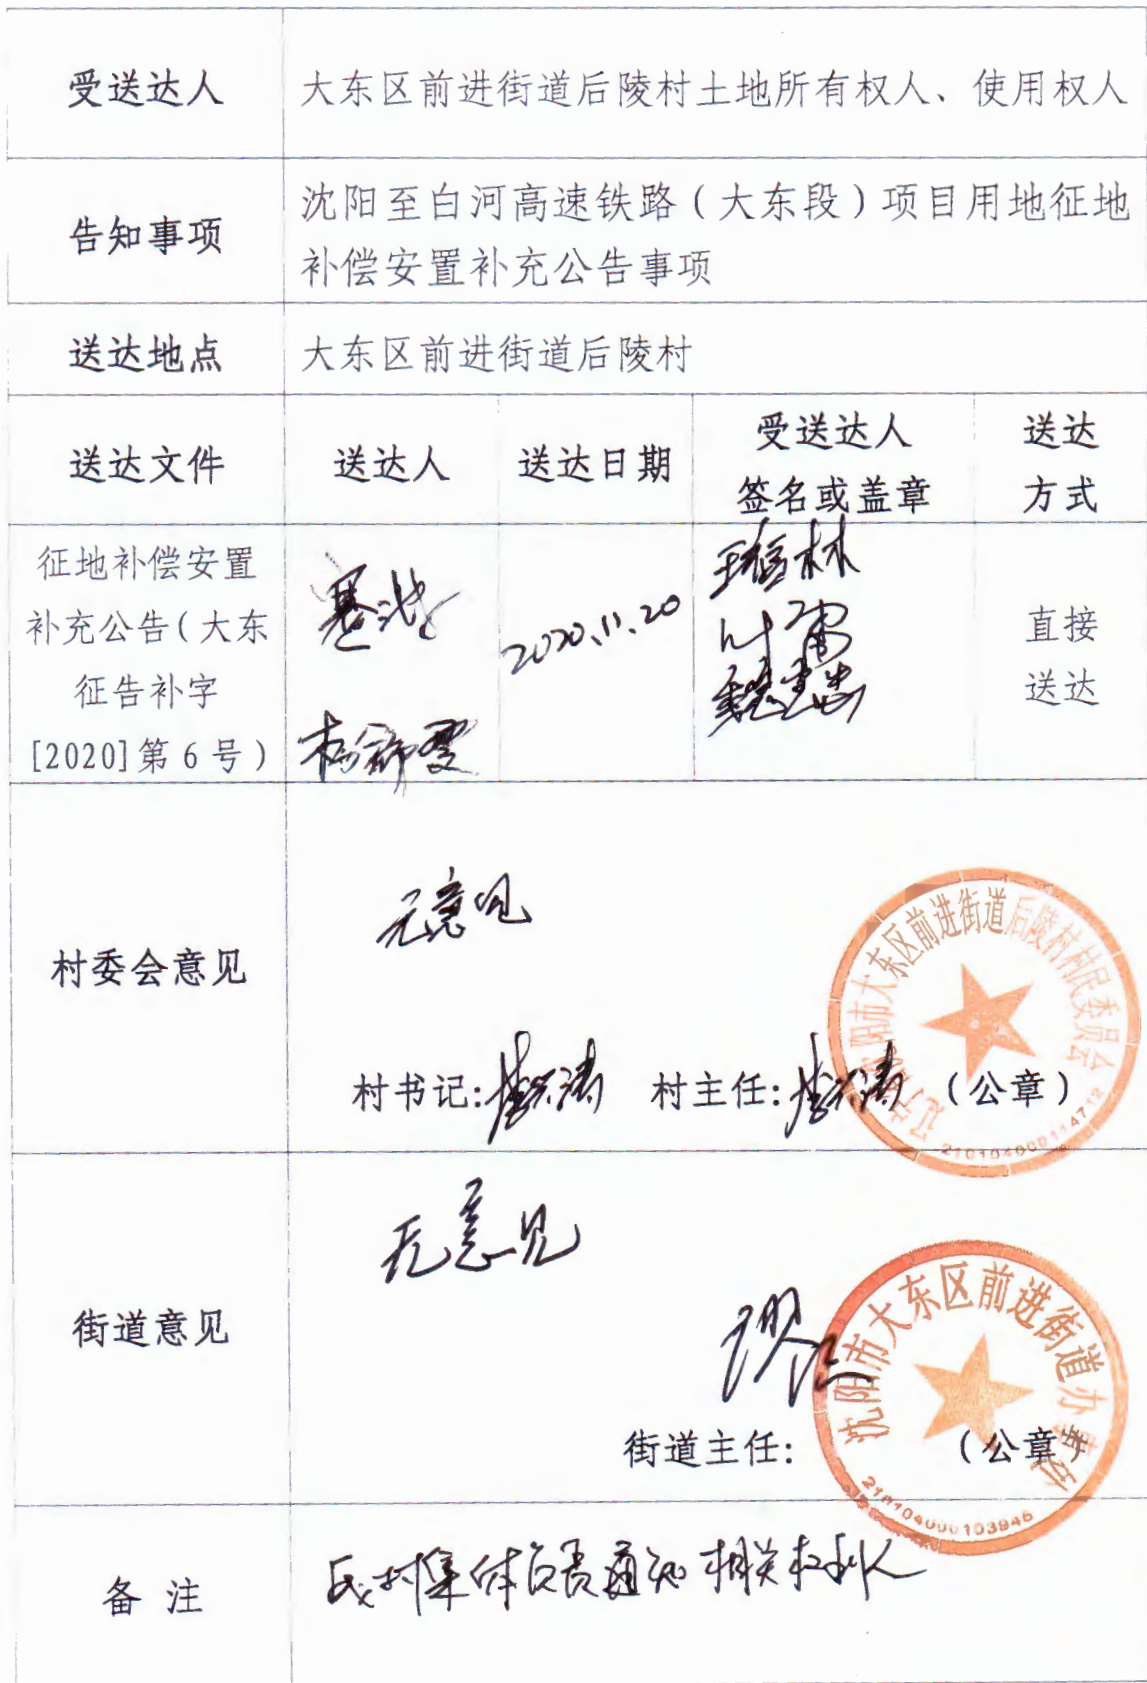 受送达人
大东区前进街道后陵村土地所有权人、使用权人
告知事项
沈阳至白河高速铁路（大东段）项目用地征地
补偿安置补充公告事项
送达地点
大东区前进街道后陵村
送达文件
送达人
送达日期
受送达人
签名或盖章
送达
方式
征地补偿安置
补充公告（大东
征告补字
[2020]第6号）
2020.11.20
直接
送达
村委会意见
无意见
村书记:
村主任:
（公章）
辽宁省沈阳市大东区前进街道后陵村村民委员会
街道意见
无意见
街道主任:
（公章）
沈阳市大东区前进街道办事处
210104000103946
备 注
村集体负责通知相关权利人